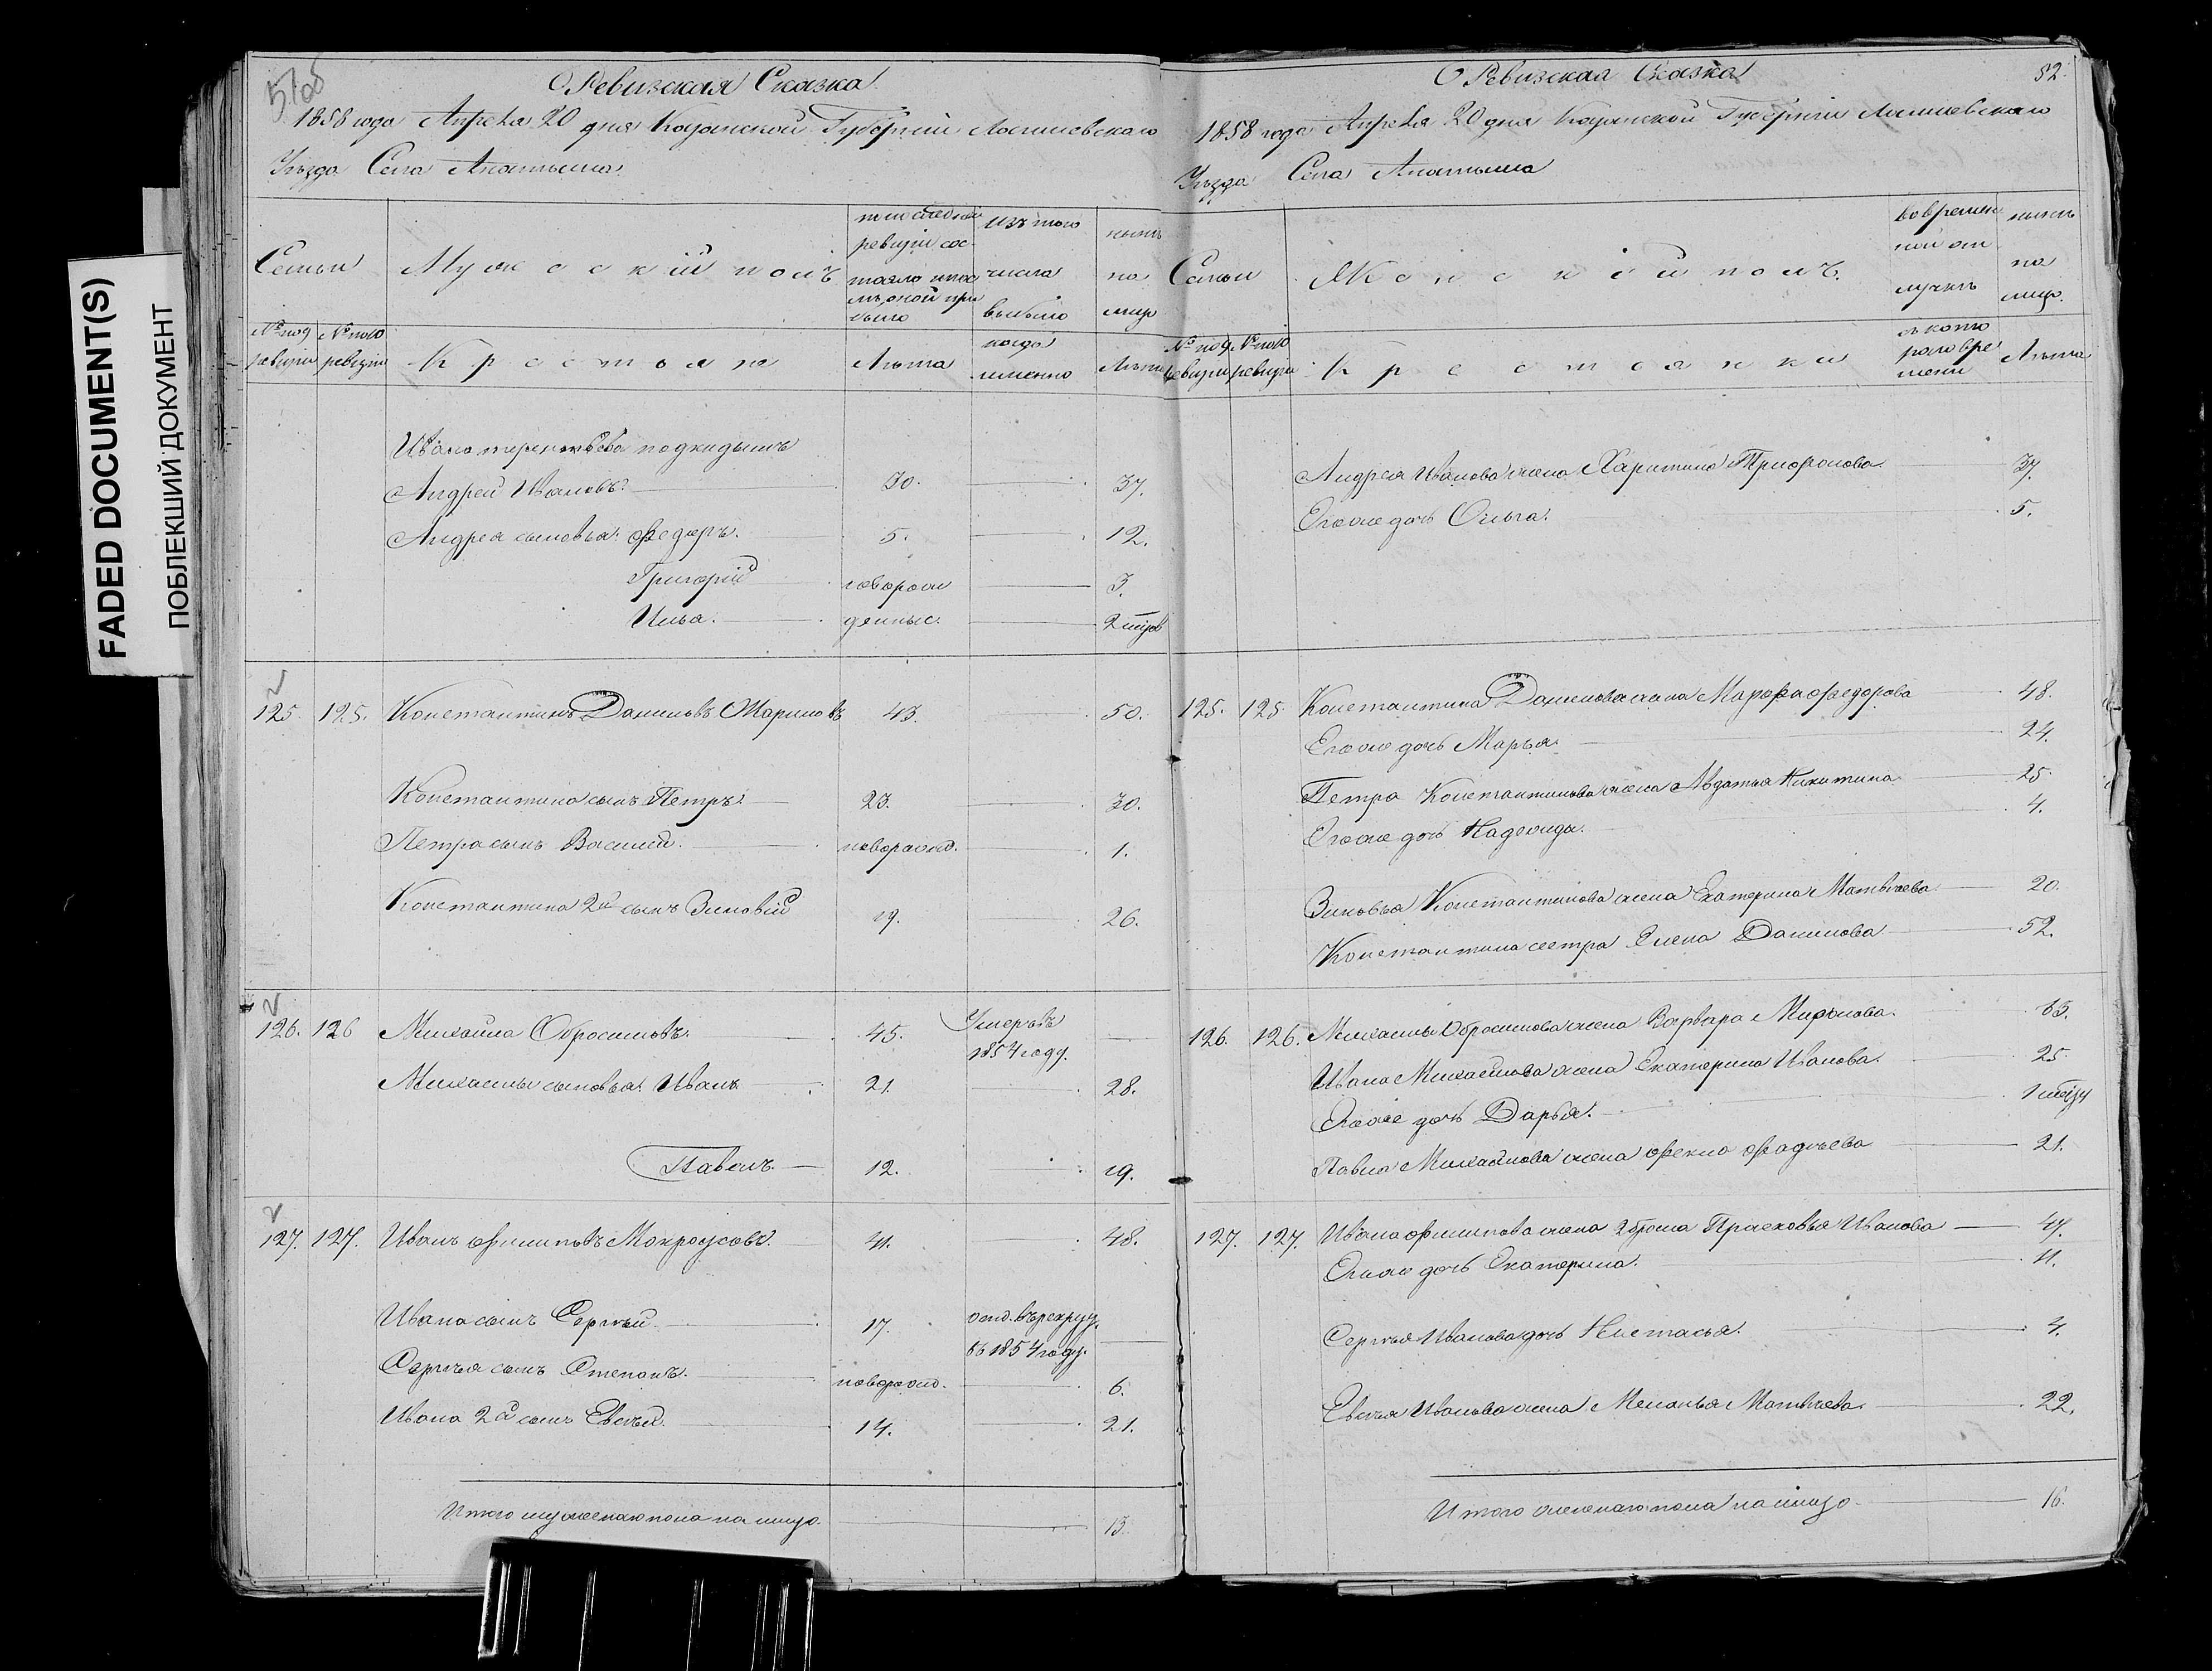 FADED DOCUMENT(S)
ПОБЛЕКШИЙ ДОКУМЕНТ
51об
Ревизская Сказка
1858 года Апреля 20 дня Казанской Губерніи Лаишевскаго
Уѣзда Села Анатыша
Семьи
Мужескій полъ
по последней
ревизіи сос-
тояло и пос-
лѣ оной при
было
изъ того
числа
выбыло
нынѣ
на
лицо
№ по 9
ревизіи
№ по 10
ревизіи
Крестьяне
Лѣта
когда
именно
Лѣта
Ивана терентьева подкидышъ
Андрей Ивановъ. 30. 37.
Андрея сыновья: Федоръ. 5. 12.
Григорій новорож 3.
Илья. денные. 2 мцов
125. 125. Константинъ Даниловъ Мариновъ 43. 50.
Константина сынъ Петръ. 23. 30.
Петра сынъ Василій. новорожд. 1.
Константина 2й сынъ Зиновій 19. 26.
126. 126 Михайла Обросимовъ. 45. Умеръ въ
1854 году.
Михайлы сыновья: Иванъ 21. 28.
Павелъ. 12. 19.
127. 127. Иванъ Филиповъ Мокроусовъ. 41. 48.
Ивана сынъ Сергѣй. 17. отд. въ рекрут.
въ 1854 году.
Сергѣя сынъ Степанъ. новорожд. 6.
Ивана 2й сынъ Евсѣй. 14. 21.
Итого мужескаго пола на лицо. 13.
52.
Ревизская Сказка
1858 года Апреля 20 дня Казанской Губерніи Лаишевскаго
Уѣзда Села Анатыша
Семьи
Женскій полъ.
во времен-
ной от
лучкѣ
нынѣ
на
лицо.
№ по 9
ревизіи
№ по 10
ревизіи
Крестьянки
съ кото
раго вре
мени
Лѣта
Андрея Иванова жена Харитина Трифонова. 37.
Его же дочь Ольга. 5.
125. 125 Константина Данилова жена Марфа Федорова 48.
Его же дочь Марья. 24.
Петра Константинова жена Авдатья Никитина 25.
Его же дочь Надежда. 4.
Зиновья Константинова жена Екатерина Матвѣева 20.
Константина сестра Елена Данилова 52.
126. 126. Михайлы Обросимова жена Варвара Миронова.
Ивана Михайлова жена Екатерина Иванова. 25.
Его же дочь Дарья.
Павла Михайлова жена Фекла Фадѣева 21.
127. 127. Ивана Филипова жена 2 брака Прасковья Иванова 47.
Его же дочь Екатерина. 11.
Сергѣя Иванова дочь Настасья. 4.
Евсѣя Иванова жена Меланья Матвѣева. 22.
Итого женскаго пола на лицо 16.